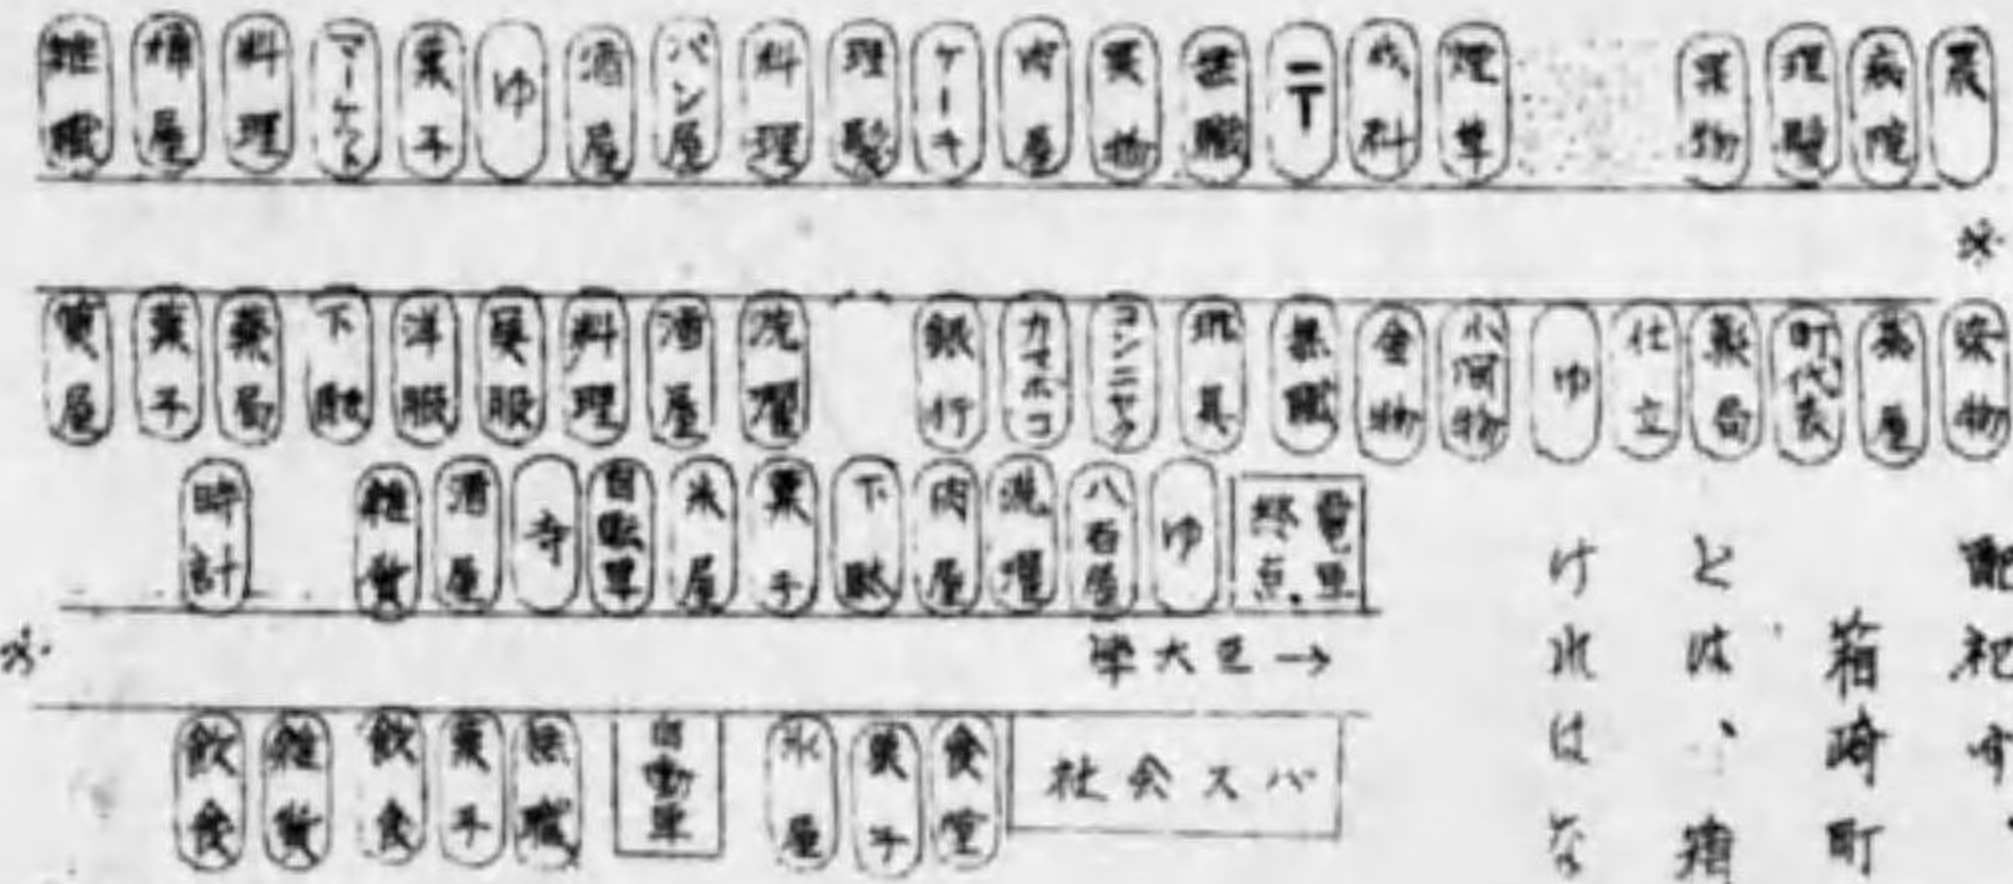 料理
マーケット
菓子
ゆ
酒屋
パン屋
料理
理髪
ケーキ
肉屋
果物
無職
歯科
煙草
果物
理髪
病院
農
質屋
菓子
薬局
下駄
洋服
呉服
料理
酒屋
洗濯
銀行
カマボコ
コンニャク
玩具
無職
金物
小間物
ゆ
仕立
薬局
町代表
時計
雑貨
酒屋
寺
自転車
米屋
菓子
下駄
肉屋
洗濯
八百屋
ゆ
電車終点
学大九→
飲食
雑貨
飲食
菓子
無職
自動車
氷屋
菓子
食堂
社会スバ
箱崎町
とは、
ければな